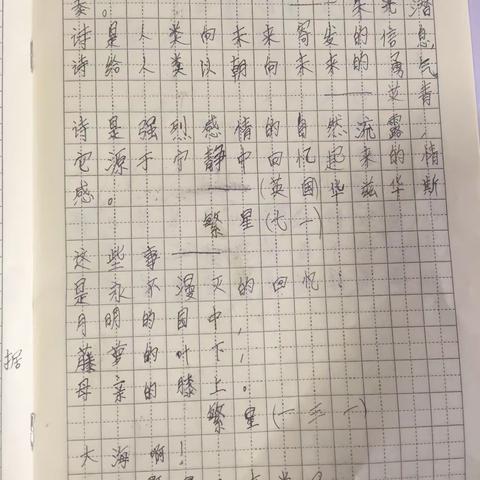 索。
——朱光潜
诗是人类向未来寄发的信息，
诗给人类以朝向未来的勇气
——艾青
诗是强烈感情的自然流露，
它源于宁静中回忆起来的情
感。——(英国)华兹华斯
繁星(七一)
这些事——
是永不漫灭的回忆！
月明的园中，
藤萝的叶下，
母亲的膝上。
繁星(一三一)
大海啊！
据